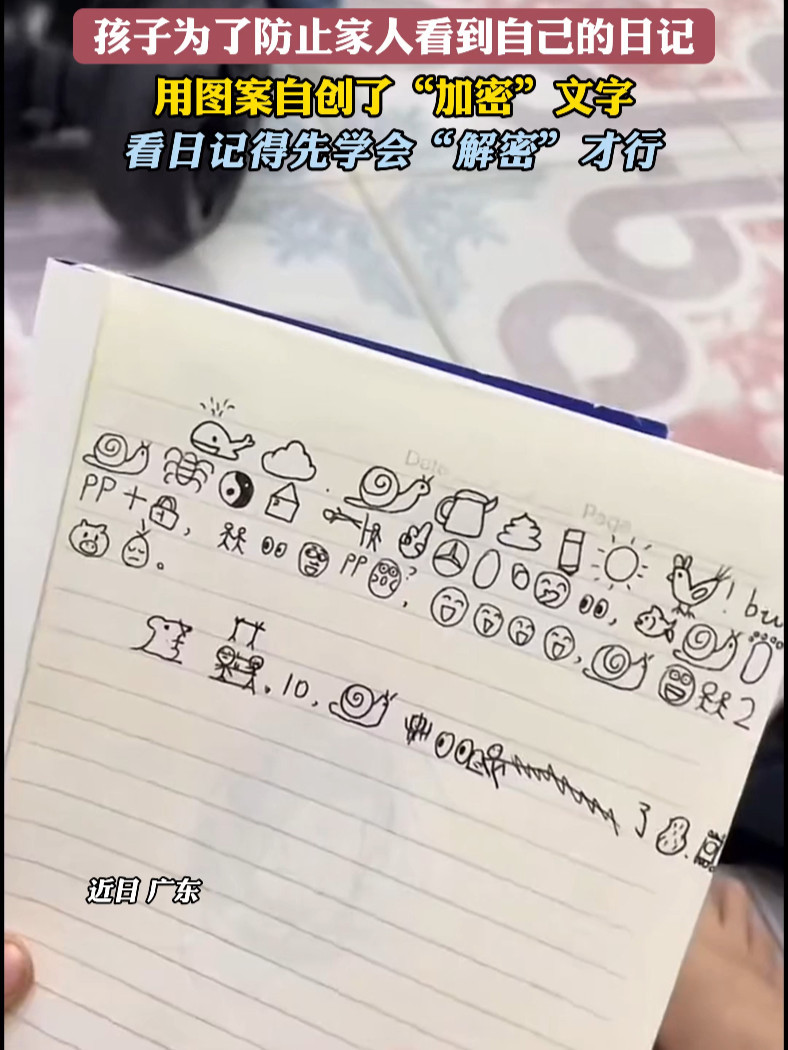 孩子为了防止家人看到自己的日记
用图案自创了“加密”文字
看日记得先学会“解密”才行
Date
Page
! bu
PP+ , PP ? , , 2
。
. 10, 了 .
近日 广东